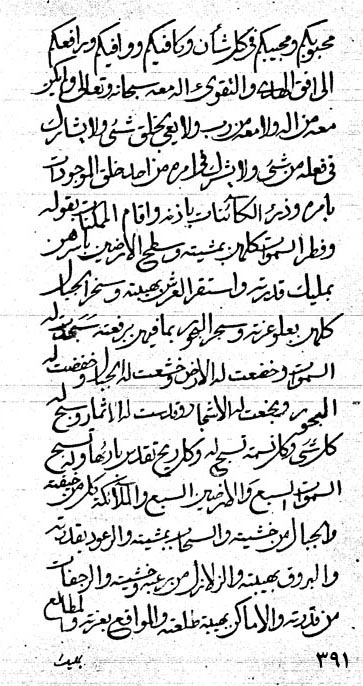 محبوبكم ومجيبكم فى كل شأن وكافيكم ووافيكم ورافعكم
الى افق الهاء والتقوى الله معه سبحانه وتعالى ولم يكن
معه من اله ولا معه من رب ولا يعى بخلق شئ ولا يشارك
فى فعله من شئ ولا يشرك فى امره من احد خلق الموجودات
بامره وذرئ الكائنات باذنه واقام الممكنات بقوله
وفطر السموات كلهن بمشيته وسطح الارضين باسرهن
بمليك قدرته واستقر العرش بهيبته وسخر الجبال
كلهن بعلو عزته وسجر البحور بما فيهن برفعته سجدت له
السموات وخضعت له الارض وخشعت له الجبال وخفضت له
البحور وبخعت له الاشجار وقدست له الاثمار وسبح له
كل شئ وكل نسمة تسبح له وكل ريح تقدس بارئها وتسبح
السموات السبع والارضين السبع والملائكة كل من خيفته
والجبال من خشيته والسحاب بمشيته والرعود بقدرته
والبروق بهيبته والزلازل من رعبه وخشيته والرجفات
من قدرته والاماكن بهيبة طلعته والمواقع بعزته والمطالع
٣٩١
بمليك